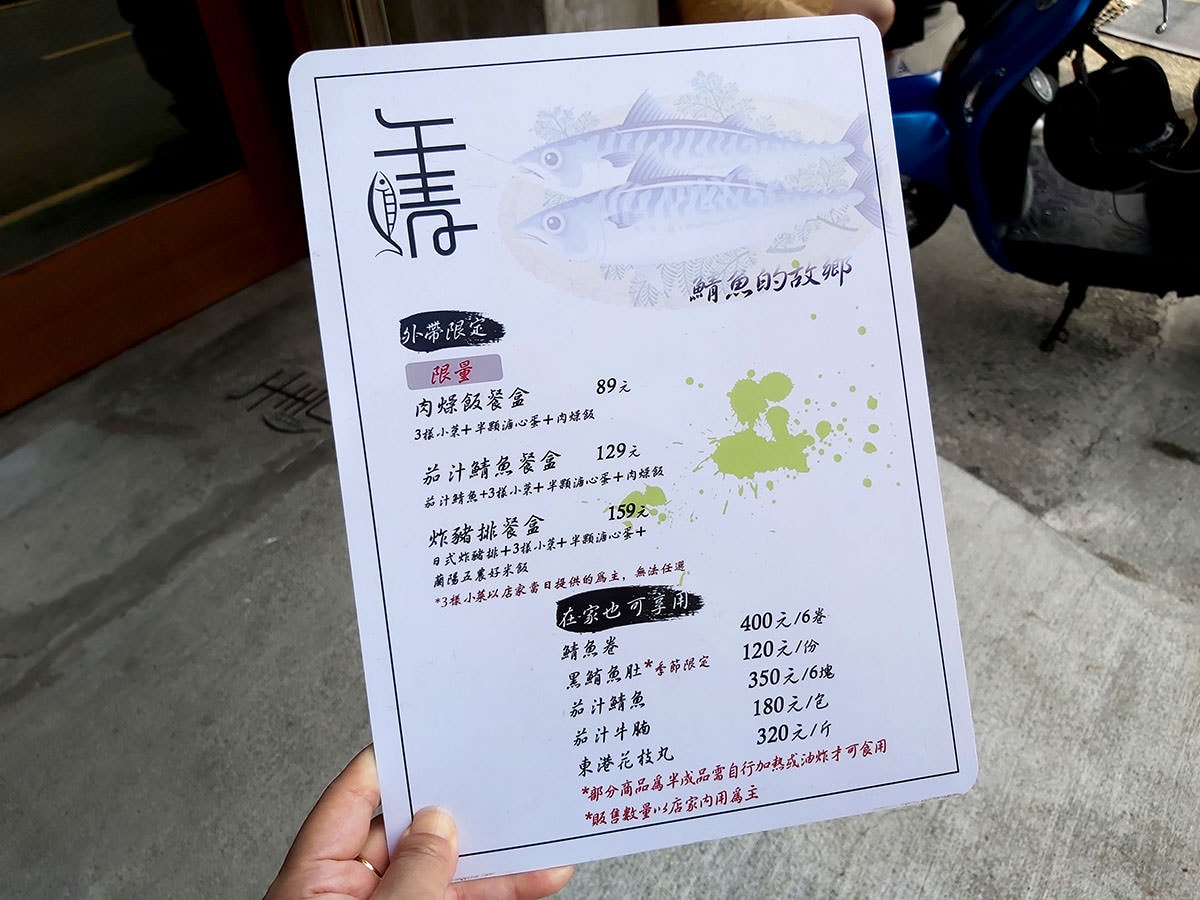 鯖魚的故鄉
外帶限定
限量
肉燥飯餐盒 89元
3樣小菜+半顆溏心蛋+肉燥飯
茄汁鯖魚餐盒 129元
茄汁鯖魚+3樣小菜+半顆溏心蛋+肉燥飯
炸豬排餐盒 159元
日式炸豬排+3樣小菜+半顆溏心蛋+
蘭陽五農好米飯
*3樣小菜以店家當日提供的為主，無法任選
在家也可享用
鯖魚卷 400元/6卷
黑鮪魚肚*季節限定 120元/份
茄汁鯖魚 350元/6塊
茄汁牛腩 180元/包
東港花枝丸 320元/斤
*部分商品為半成品需自行加熱或油炸才可食用
*販售數量以店家內用為主